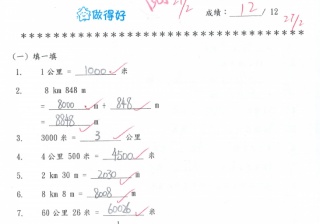 做得好
27/2
成績： 12 / 12
27/2
（一）填一填
1. 1 公里 = 1000 米
2. 8 km 848 m
= 8000 m + 848 m
= 8848 m
3. 3000 米 = 3 公里
4. 4 公里 500 米 = 4500 米
5. 2 km 30 m = 2030 m
6. 8 km 8 m = 8008 m
7. 60 公里 26 米 = 60026 米